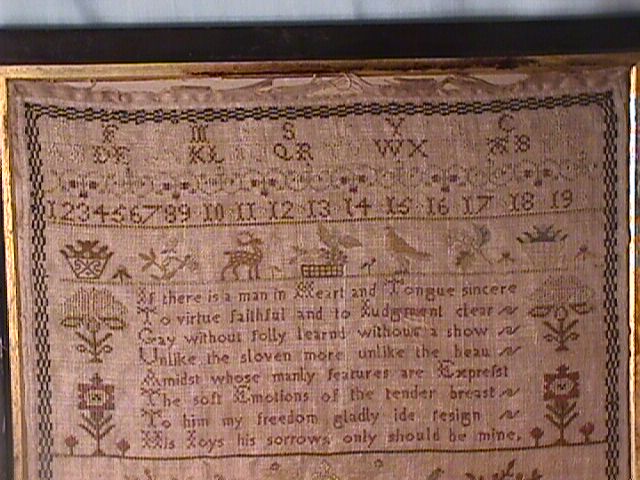 F M S Y C
DE KL QR WX ÆB
12345678910 11 12 13 14 15 16 17 18 19
If there is a man in Heart and Tongue sincere
To virtue faithful and to Judgment clear
Gay without folly learnd without a show
Unlike the sloven more unlike the beau
Amidst whose manly features are Exprefst
The soft Emotions of the tender breast
To him my freedom gladly ide resign
His Joys his sorrows only should be mine.